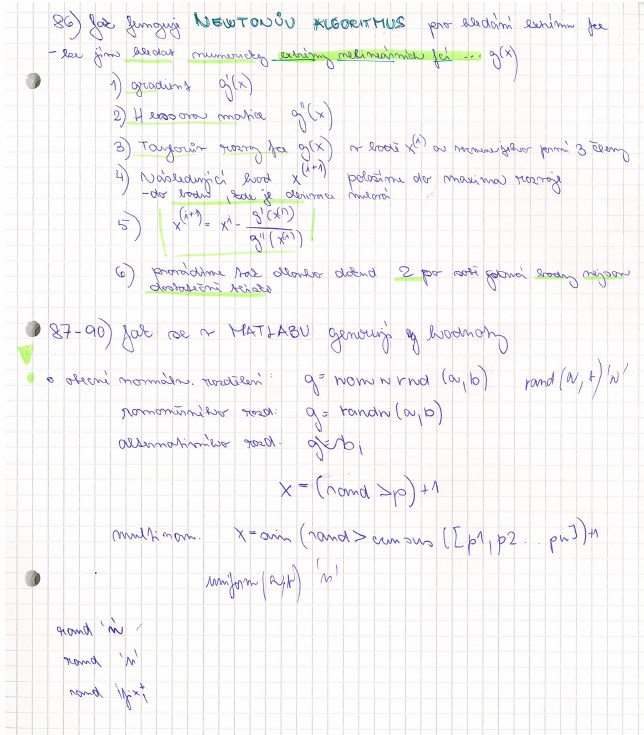 86) Jak fungují NEWTONŮV ALGORITMUS pro hledání extrému fce
- lze jím hledat numericky extrémy nelineárních fcí ... g(x)
1) gradient g'(x)
2) Hessova matice g''(x)
3) Taylorův rozvoj fce g(x) v bodě x^(i) a první 3 členy
4) Následující bod x^(i+1) položíme do maxima rozvoje
- do bodu, kde je derivace nulová
5) x^(i+1) = x^i - g'(x^(i)) / g''(x^(i))
6) provádíme tak dlouho dokud 2 po sobě jdoucí body nejsou
dostatečně blízko
87-90) Jak se v MATLABU generují hodnoty
obecní normáln. rozdělení: g = normrnd (a,b)
rovnoměrného rozd: g = randn (a,b)
alternativního rozd.
x = (rand > p) + 1
multinom. x = (rand > cumsum ([p1, p2 ... pn]) + 1
uniform
rand 'n'
rand 'n'
rand